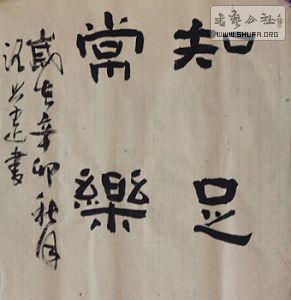 知足
常樂
歲在辛卯秋月
書藝公社
WWW.SHUFA.ORG